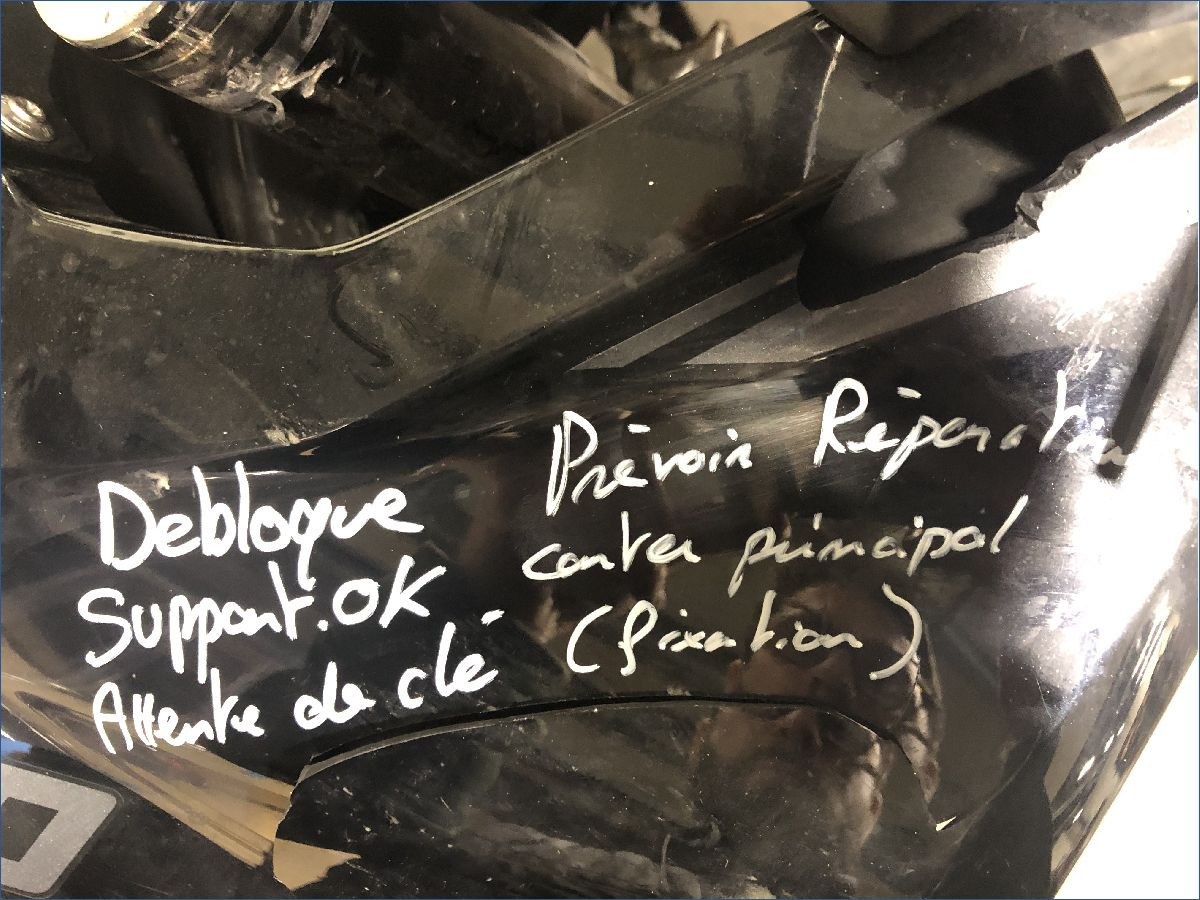 Debloque
Support.OK
Attente de clé
Prévoir Réparation
carter principal
(fixation)